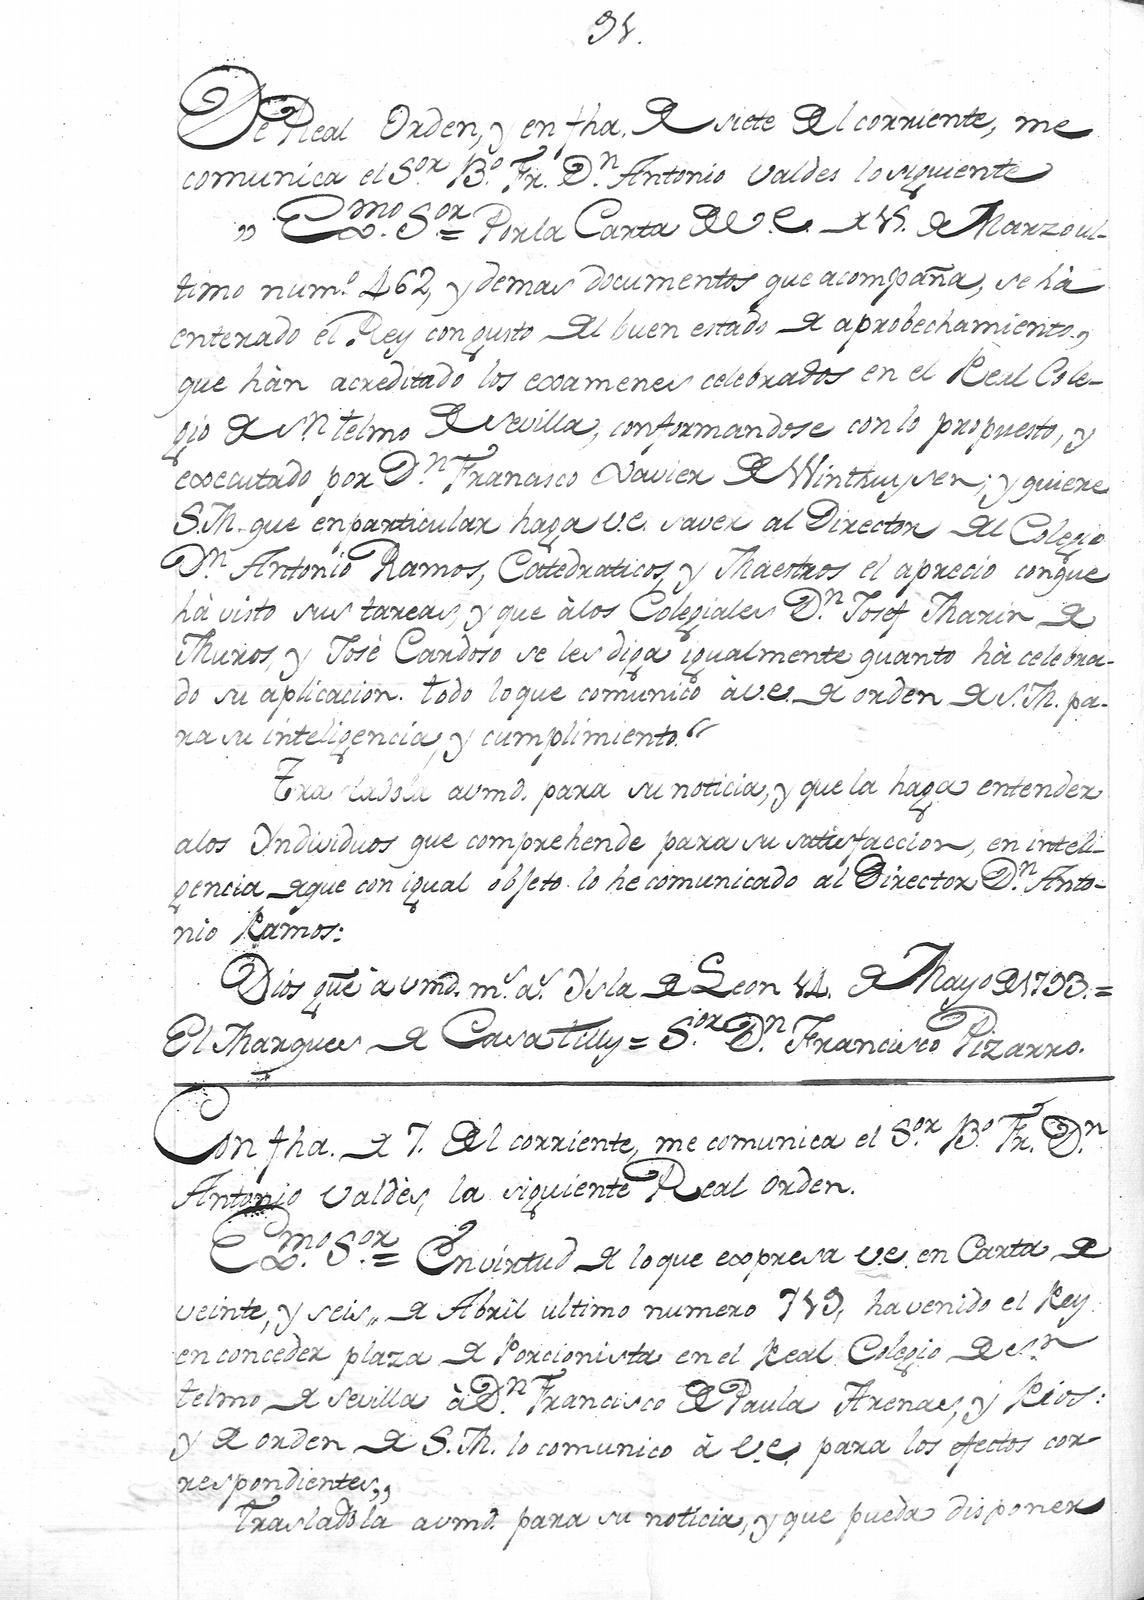 De Real Orden, y en fha. de siete del corriente, me
comunica el S.or B.o Fr. D.n Antonio Valdes lo siguiente
„ Exmo. S.or = Por la Carta de V.E. de de Marzo ul-
timo num.o 462, y demas documentos que acompaña, se hà
enterado el Rey con gusto del buen estado de aprobechamiento,
que hàn acreditado los examenes celebrados en el Real Cole-
gio de S.n telmo de Sevilla, conformandose con lo propuesto, y
executado por D.n Francisco Xavier de Winthuysen; y quiere
S.M. que en particular haga V.E. saver al Director del Colegio
D.n Antonio Ramos, Catedraticos, y Maestros el aprecio con que
hà visto sus tareas, y que à los Colegiales D.n Josef Marin de
Muros, y José Cardoso se les diga igualmente quanto hà celebra-
do su aplicacion. todo lo que comunico à V.E. de orden de S.M. pa-
ra su inteligencia, y cumplimiento."
Trasladola a vmd. para su noticia, y que la haga entender
a los Yndividuos que comprehende para su satisfaccion, en inteli-
gencia de que con igual objeto lo he comunicado al Director D.n Anto-
nio Ramos:
Dios gue à vmd. m.s a.s Ysla de Leon 14. de Mayo de 1793. =
El Marques de Casa Tilly = S.or D.n Francisco Pizarro.
Con fha. de 7. del corriente, me comunica el S.or B.o Fr. D.n
Antonio Valdès, la siguiente Real Orden.
Exmo. S.or = En virtud de lo que expresa V.E. en Carta de
veinte, y seis„ de Abril ultimo numero 719, ha venido el Rey
en conceder plaza de Porcionista en el Real Colegio de S.n
telmo de Sevilla à D.n Francisco de Paula Arenas, y Rios:
y de orden de S.M. lo comunico à V.E. para los efectos cor
respondientes„
Trasladola a vmd. para su noticia, y que pueda disponer